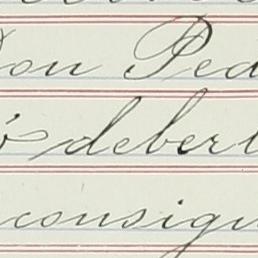 Don Ped
ó deber
consign